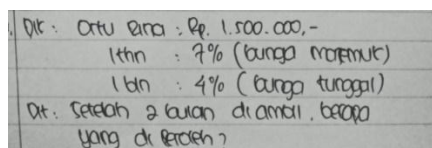 Dit: Ortu Rina : Rp. 1.500.000,-
1 thn : 7% (bunga majemuk)
1 bln : 4% (bunga tunggal)
Dit: Setelah 2 bulan di ambil, berapa
yang di peroleh?